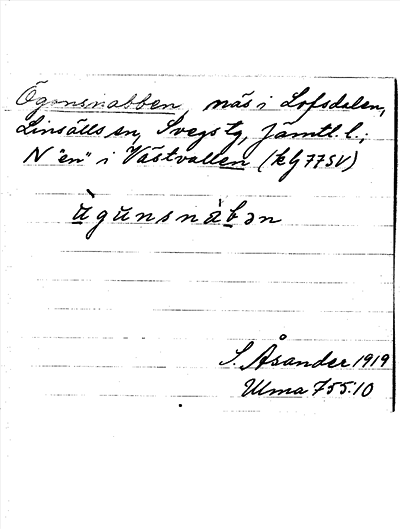 Ögonsnabben, näs i Lofsdalen,
Linsälls sn, Svegs tg, Jämtl. l.;
N "en" i Västvallen (kg 77 SV)
ùgunsnàbən
S. Åsander 1919
Ulma 755:10